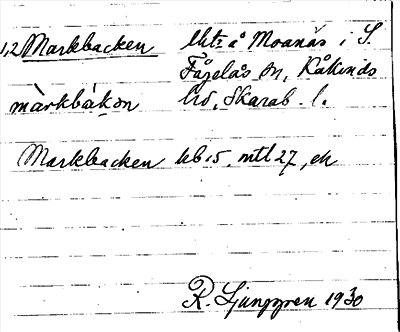 1,2 Markbacken lht: å Moanäs i S.
Fågelås sn, Kåkinds
màrkbákən hd, Skarab. l.
Markbacken kb 15, mtl 27, ek
R. Ljunggren 1930